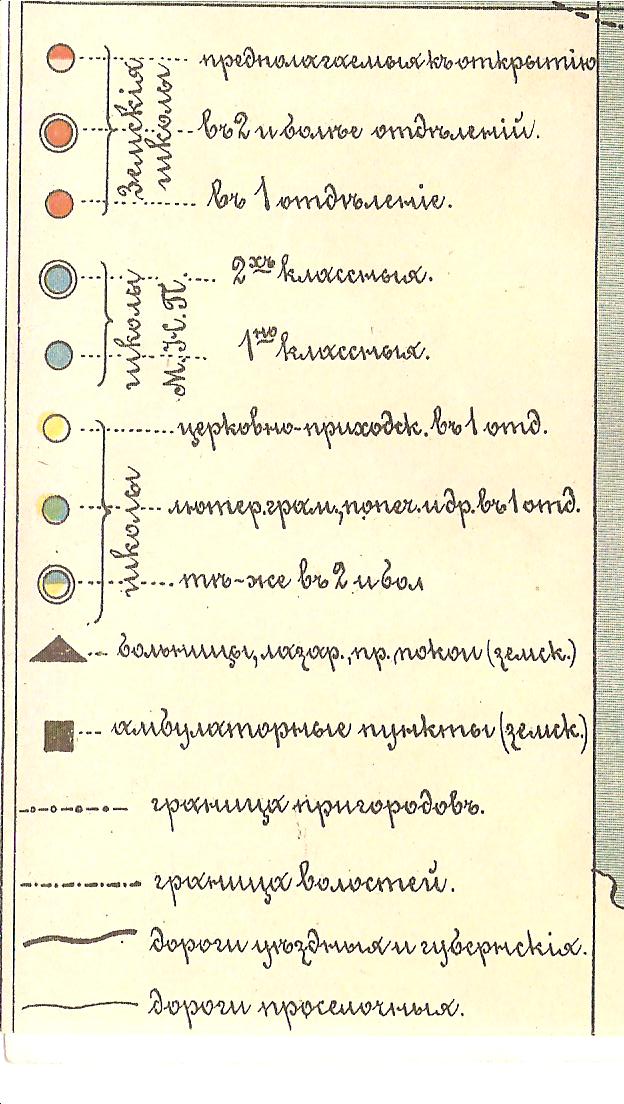 Земскія школы
предполагаемыя къ открытію
въ 2 и болѣе отдѣленій.
въ 1 отдѣленіе.
школы М. Н. П.
2хъ классныя.
1но классныя.
школы
церковно-приходск. въ 1 отд.
лютер. грам., попеч. и др. въ 1 отд.
тѣ-же въ 2 и бол
больницы, лазар., пр. покои (земск.)
амбулаторные пункты (земск.)
граница пригородовъ.
граница волостей.
дороги уѣздныя и губернскія.
дороги проселочныя.